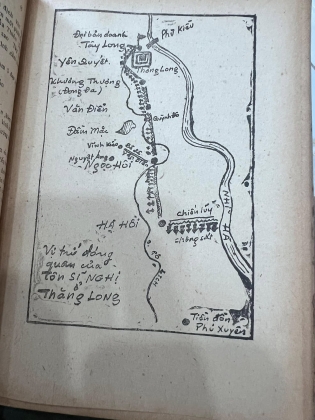 Đại bản doanh
Tây Long
Phù Kiều
Yên Quyết
Thăng Long
Khương Thượng
(Đống Đa)
Văn Điển
Quỳnh Đô
Đầm Mực
Vĩnh Kiều
Nguyệt Áng
NGỌC HỒI
NHỊ HÀ
HẠ HỒI
chiến lũy
chông sắt
TÔ LỊCH
Vị trí đóng
quân của
TÔN SĨ NGHỊ
ở
THĂNG LONG
Tiền đồn
Phú Xuyên